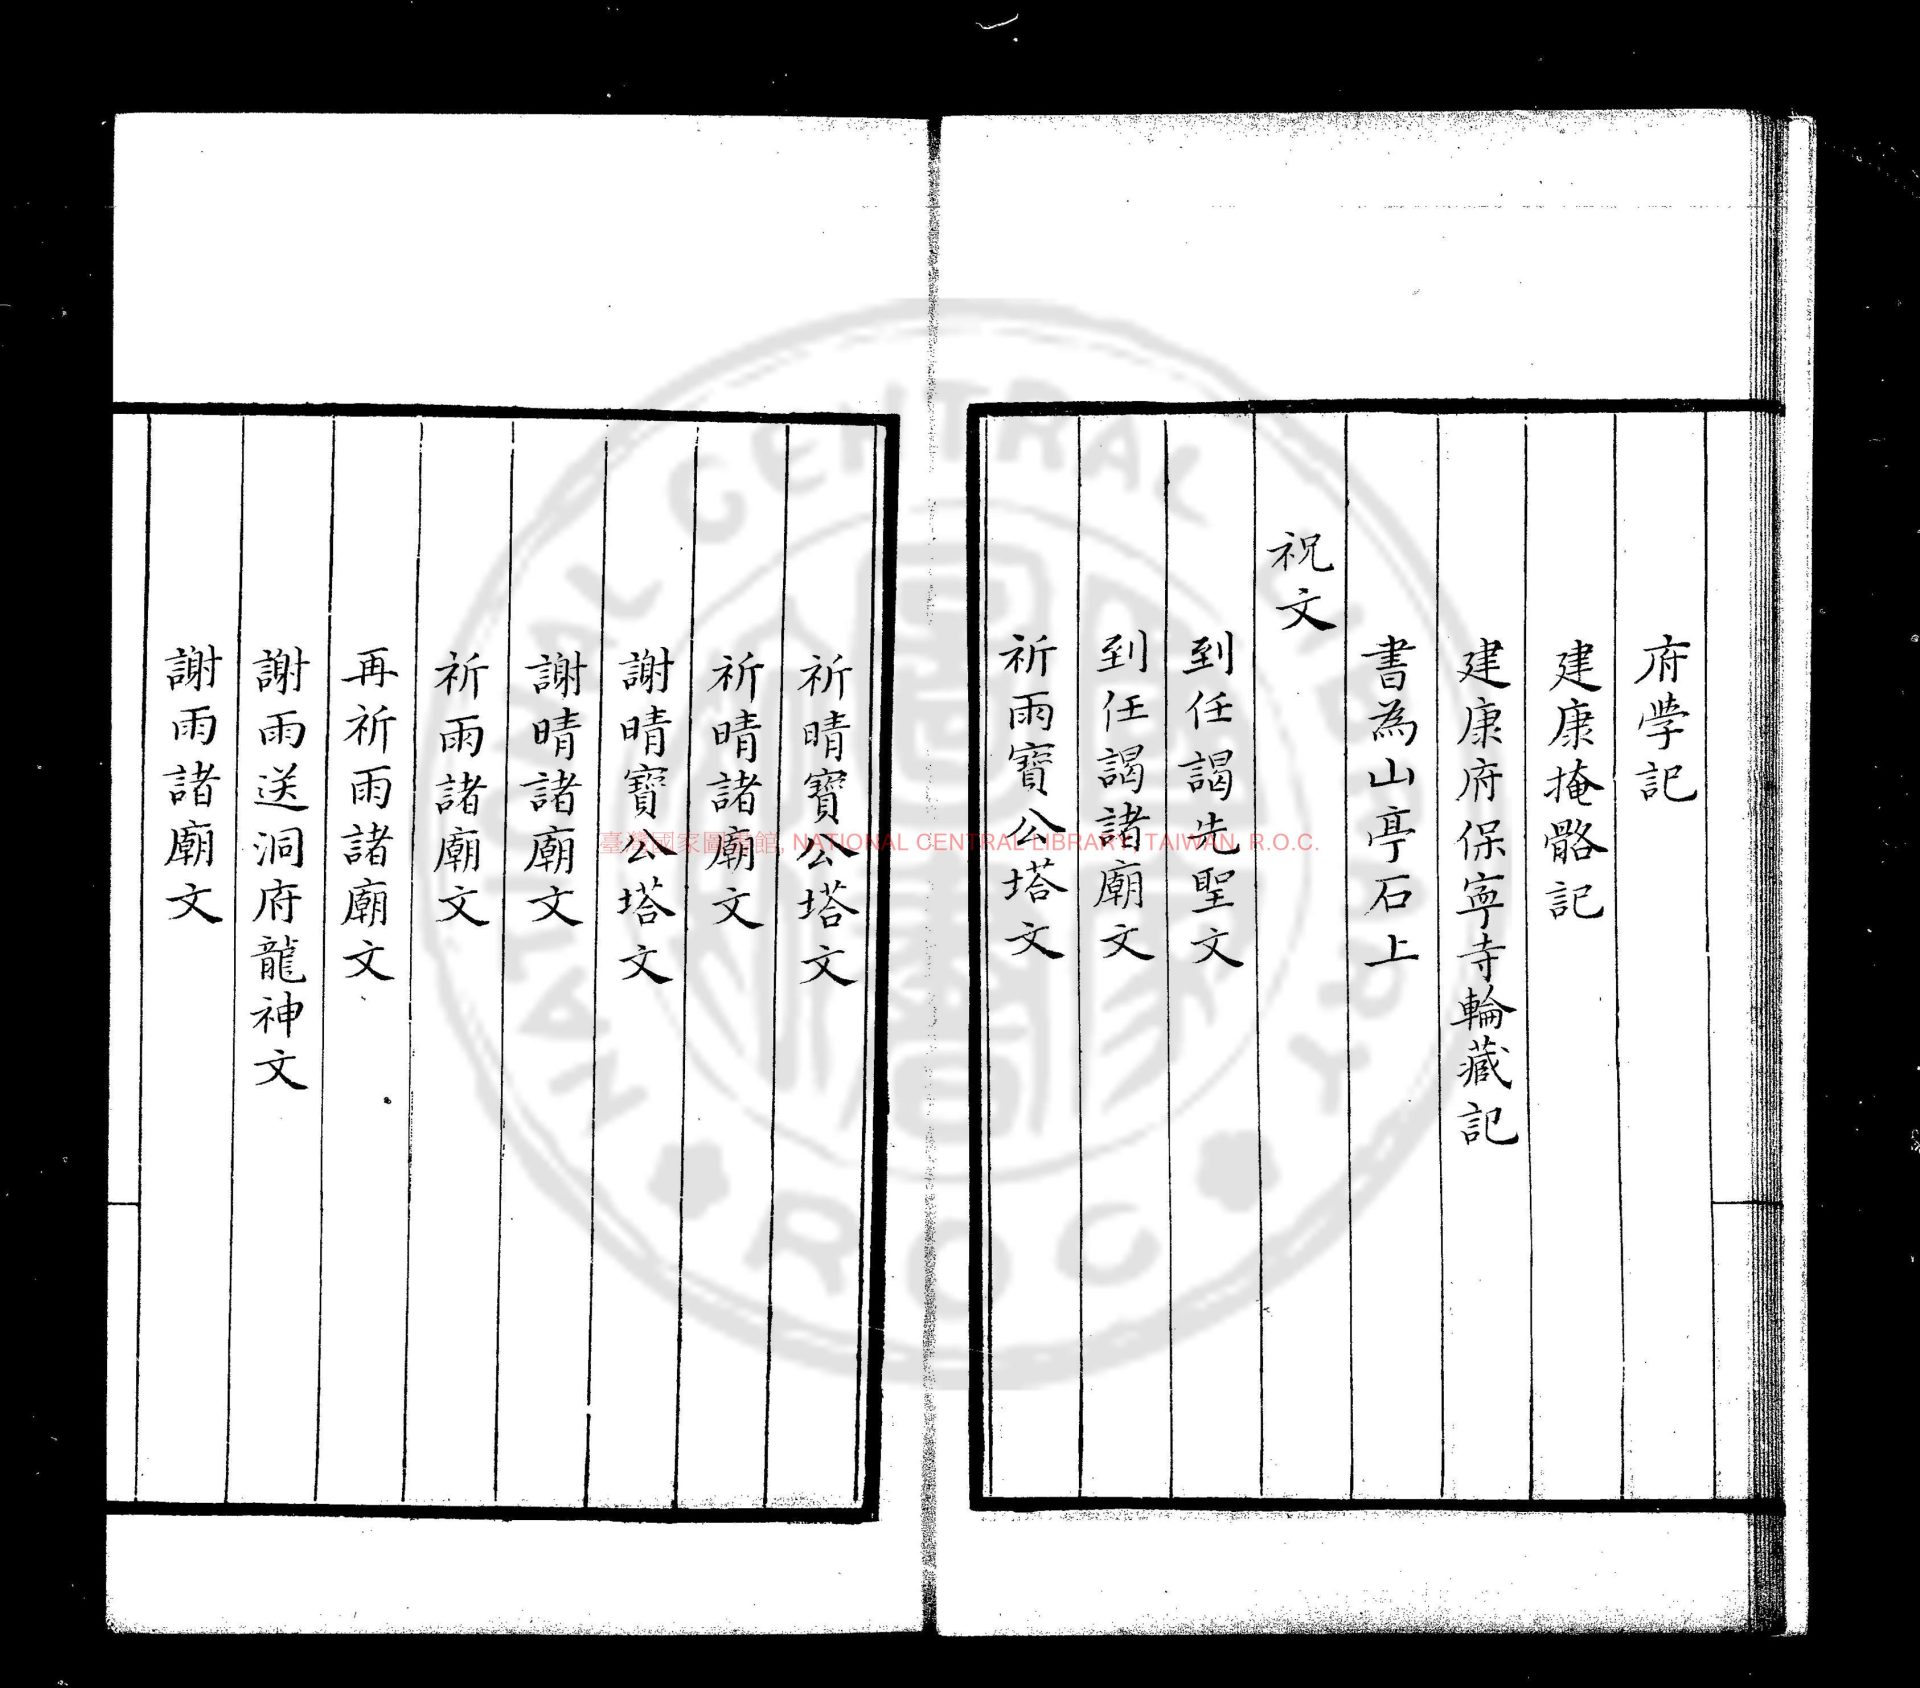 府學記
建康掩骼記
建康府保寧寺輪藏記
書為山亭石上
祝文
到任謁先聖文
到任謁諸廟文
祈雨寶公塔文
祈晴寶公塔文
祈晴諸廟文
謝晴寶公塔文
謝晴諸廟文
祈雨諸廟文
再祈雨諸廟文
謝雨送洞府龍神文
謝雨諸廟文
臺灣國家圖書館, NATIONAL CENTRAL LIBRARY, TAIWAN, R.O.C.
NATIONAL CENTRAL LIBRARY
ROC